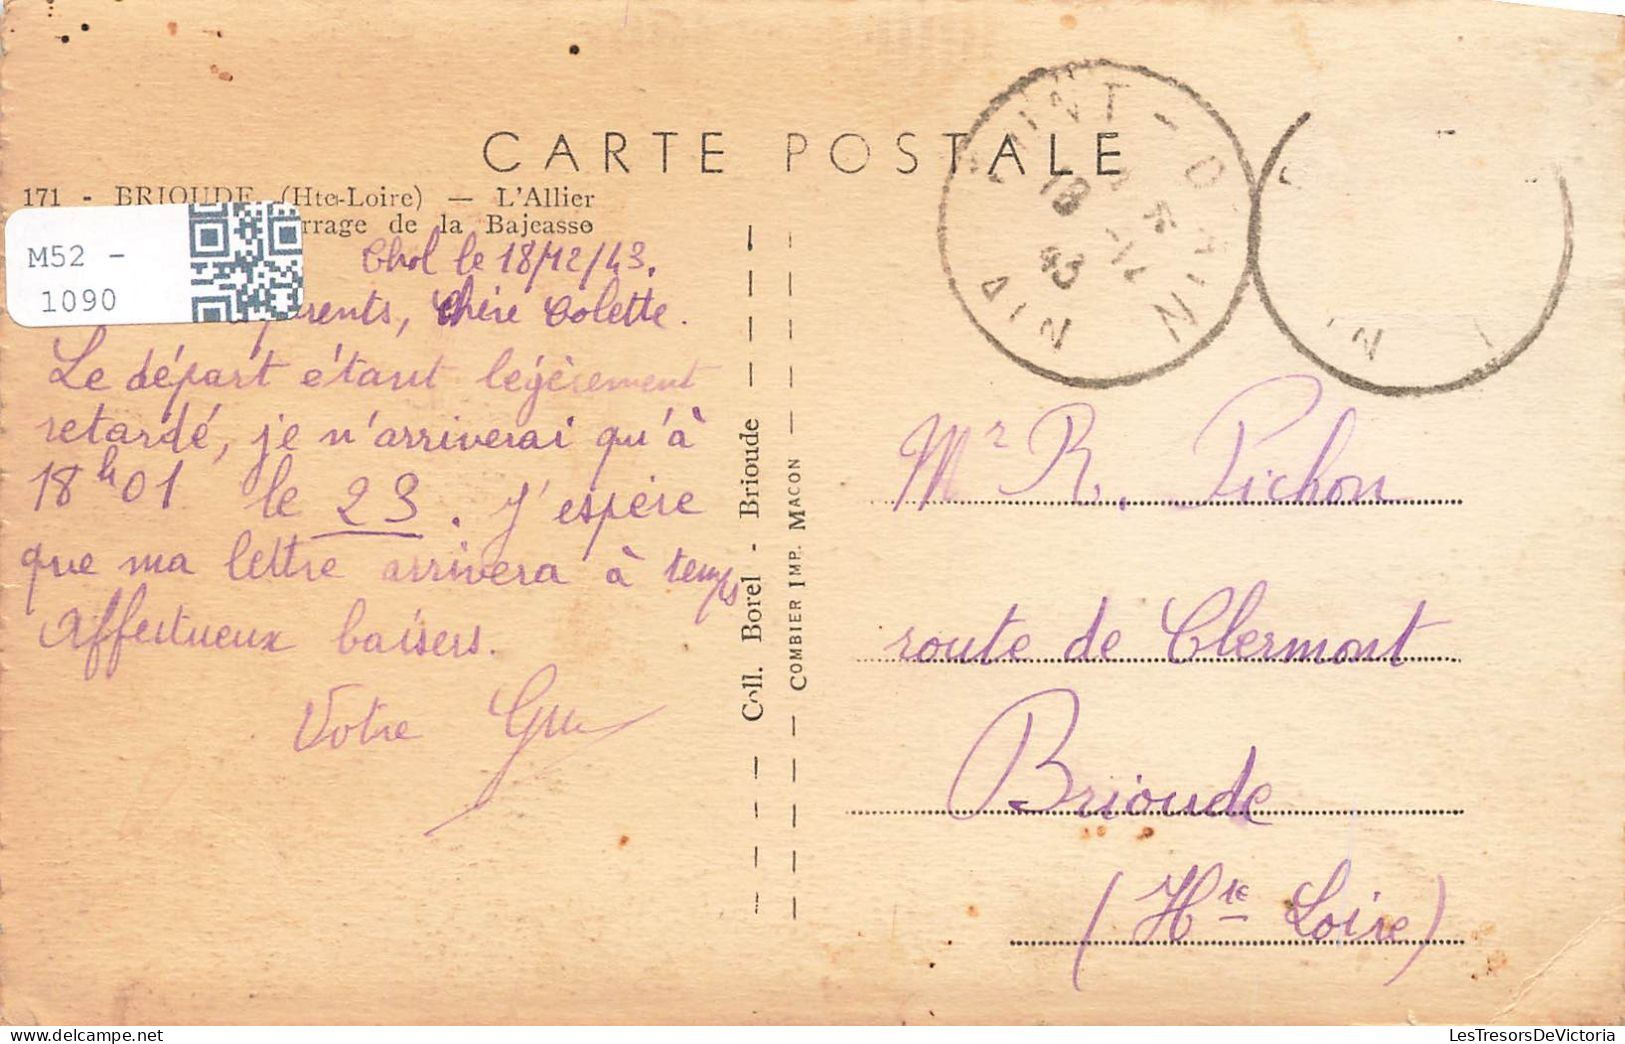 CARTE POSTALE
171 - BRIOUDE (Hte-Loire) — L'Allier
rrage de la Bajeasse
M52 -
1090
le 18/12/43.
parents, Chère Colette.
Le départ étant légèrement
retardé, je n'arriverai qu'à
18h01 le 23. J'espère
que ma lettre arrivera à temps
Affectueux baisers.
Votre
Coll. Borel - Brioude
COMBIER IMP. MACON
18
12
43
Mr R. Pichon
route de Clermont
Brioude
(Hte Loire)
LesTresorsDeVictoria